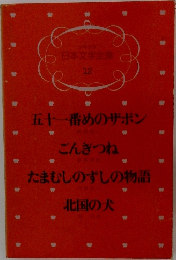 日本文学全集
12
五十一番めのザボン
ごんぎつね
たまむしのずしの物語
北国の犬